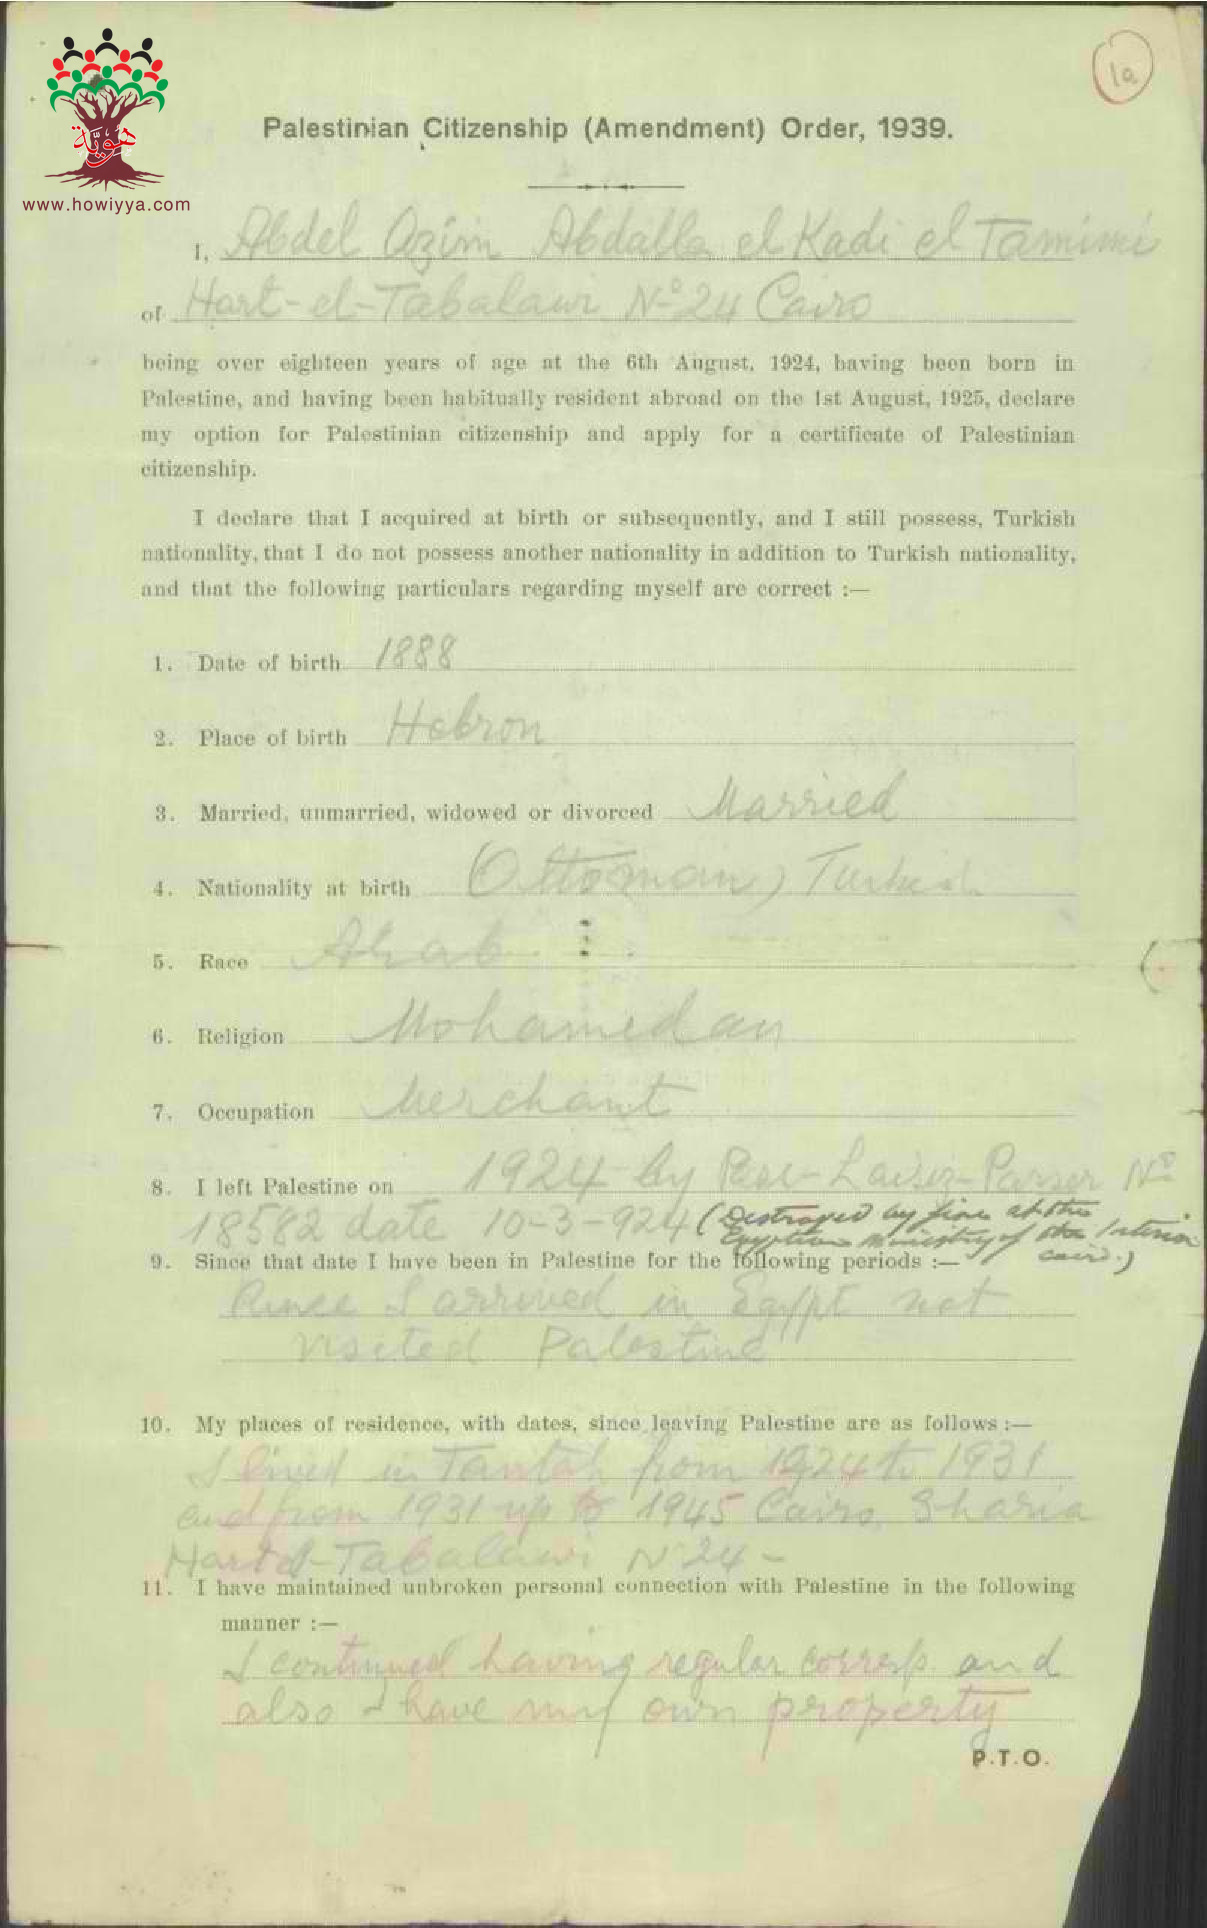 1a
هوية
www.howiyya.com
Palestinian Citizenship (Amendment) Order, 1939.
I, Abdel Azim Abdalla el Kadi el Tamimi
of Hart-el-Tabalawi No 24 Cairo
being over eighteen years of age at the 6th August, 1924, having been born in
Palestine, and having been habitually resident abroad on the 1st August, 1925, declare
my option for Palestinian citizenship and apply for a certificate of Palestinian
citizenship.
I declare that I acquired at birth or subsequently, and I still possess, Turkish
nationality, that I do not possess another nationality in addition to Turkish nationality,
and that the following particulars regarding myself are correct :—
1. Date of birth 1888
2. Place of birth Hebron
3. Married, unmarried, widowed or divorced Married
4. Nationality at birth (Ottoman) Turkish
5. Race Arab
6. Religion Mohamedan
7. Occupation Merchant
8. I left Palestine on 1924 by Laisez-Passer No
18582 date 10-3-924 (Destroyed by fire at the
Egyptian Ministry of the Interior
Cairo.)
9. Since that date I have been in Palestine for the following periods :—
I arrived in Egypt not
visited Palestine
10. My places of residence, with dates, since leaving Palestine are as follows :—
I lived in Tantah from 1924 to 1931
and from 1931 up to 1945 Cairo, Sharia
Hart el-Tabalawi No 24 -
11. I have maintained unbroken personal connection with Palestine in the following
manner :—
I continued having regular corresp. and
also I have my own property
P.T.O.